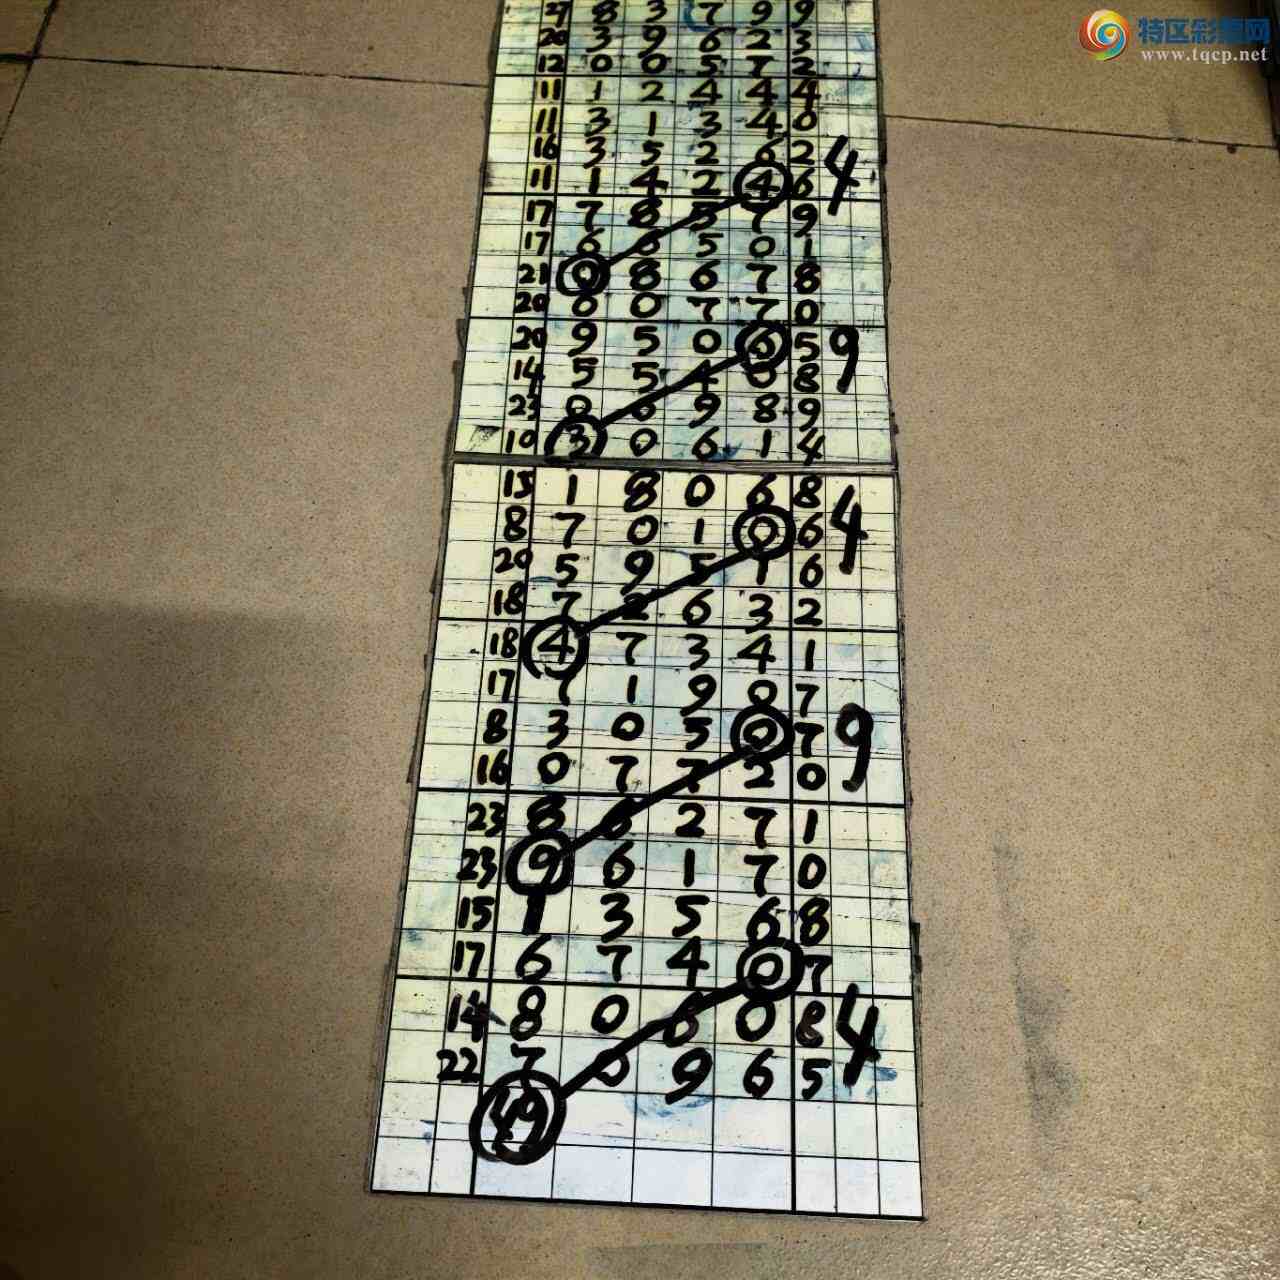 特区彩票网
www.tqcp.net
27 8 3 7 9 9
20 3 9 6 2 3
12 0 0 5 7 2
11 1 2 4 4 4
11 3 1 3 4 0
16 3 5 2 6 2
11 1 4 2 4 6 4
17 7 8 5 7 9
17 6 6 5 0 1
21 0 8 6 7 8
20 6 0 7 7 0
20 9 5 0 6 5 9
14 5 5 4 0 8
23 0 6 9 8 9
10 3 0 6 1 4
15 1 8 0 6 8
8 7 0 1 0 6 4
20 5 9 5 1 6
18 7 2 6 3 2
18 4 7 3 4 1
17 7 1 9 0 7
8 3 0 5 0 7 9
16 0 7 7 2 0
23 8 6 2 7 1
23 9 6 1 7 0
15 1 3 5 6 8
17 6 7 4 0 7
14 8 0 6 0 8 4
22 7 0 9 6 5
49